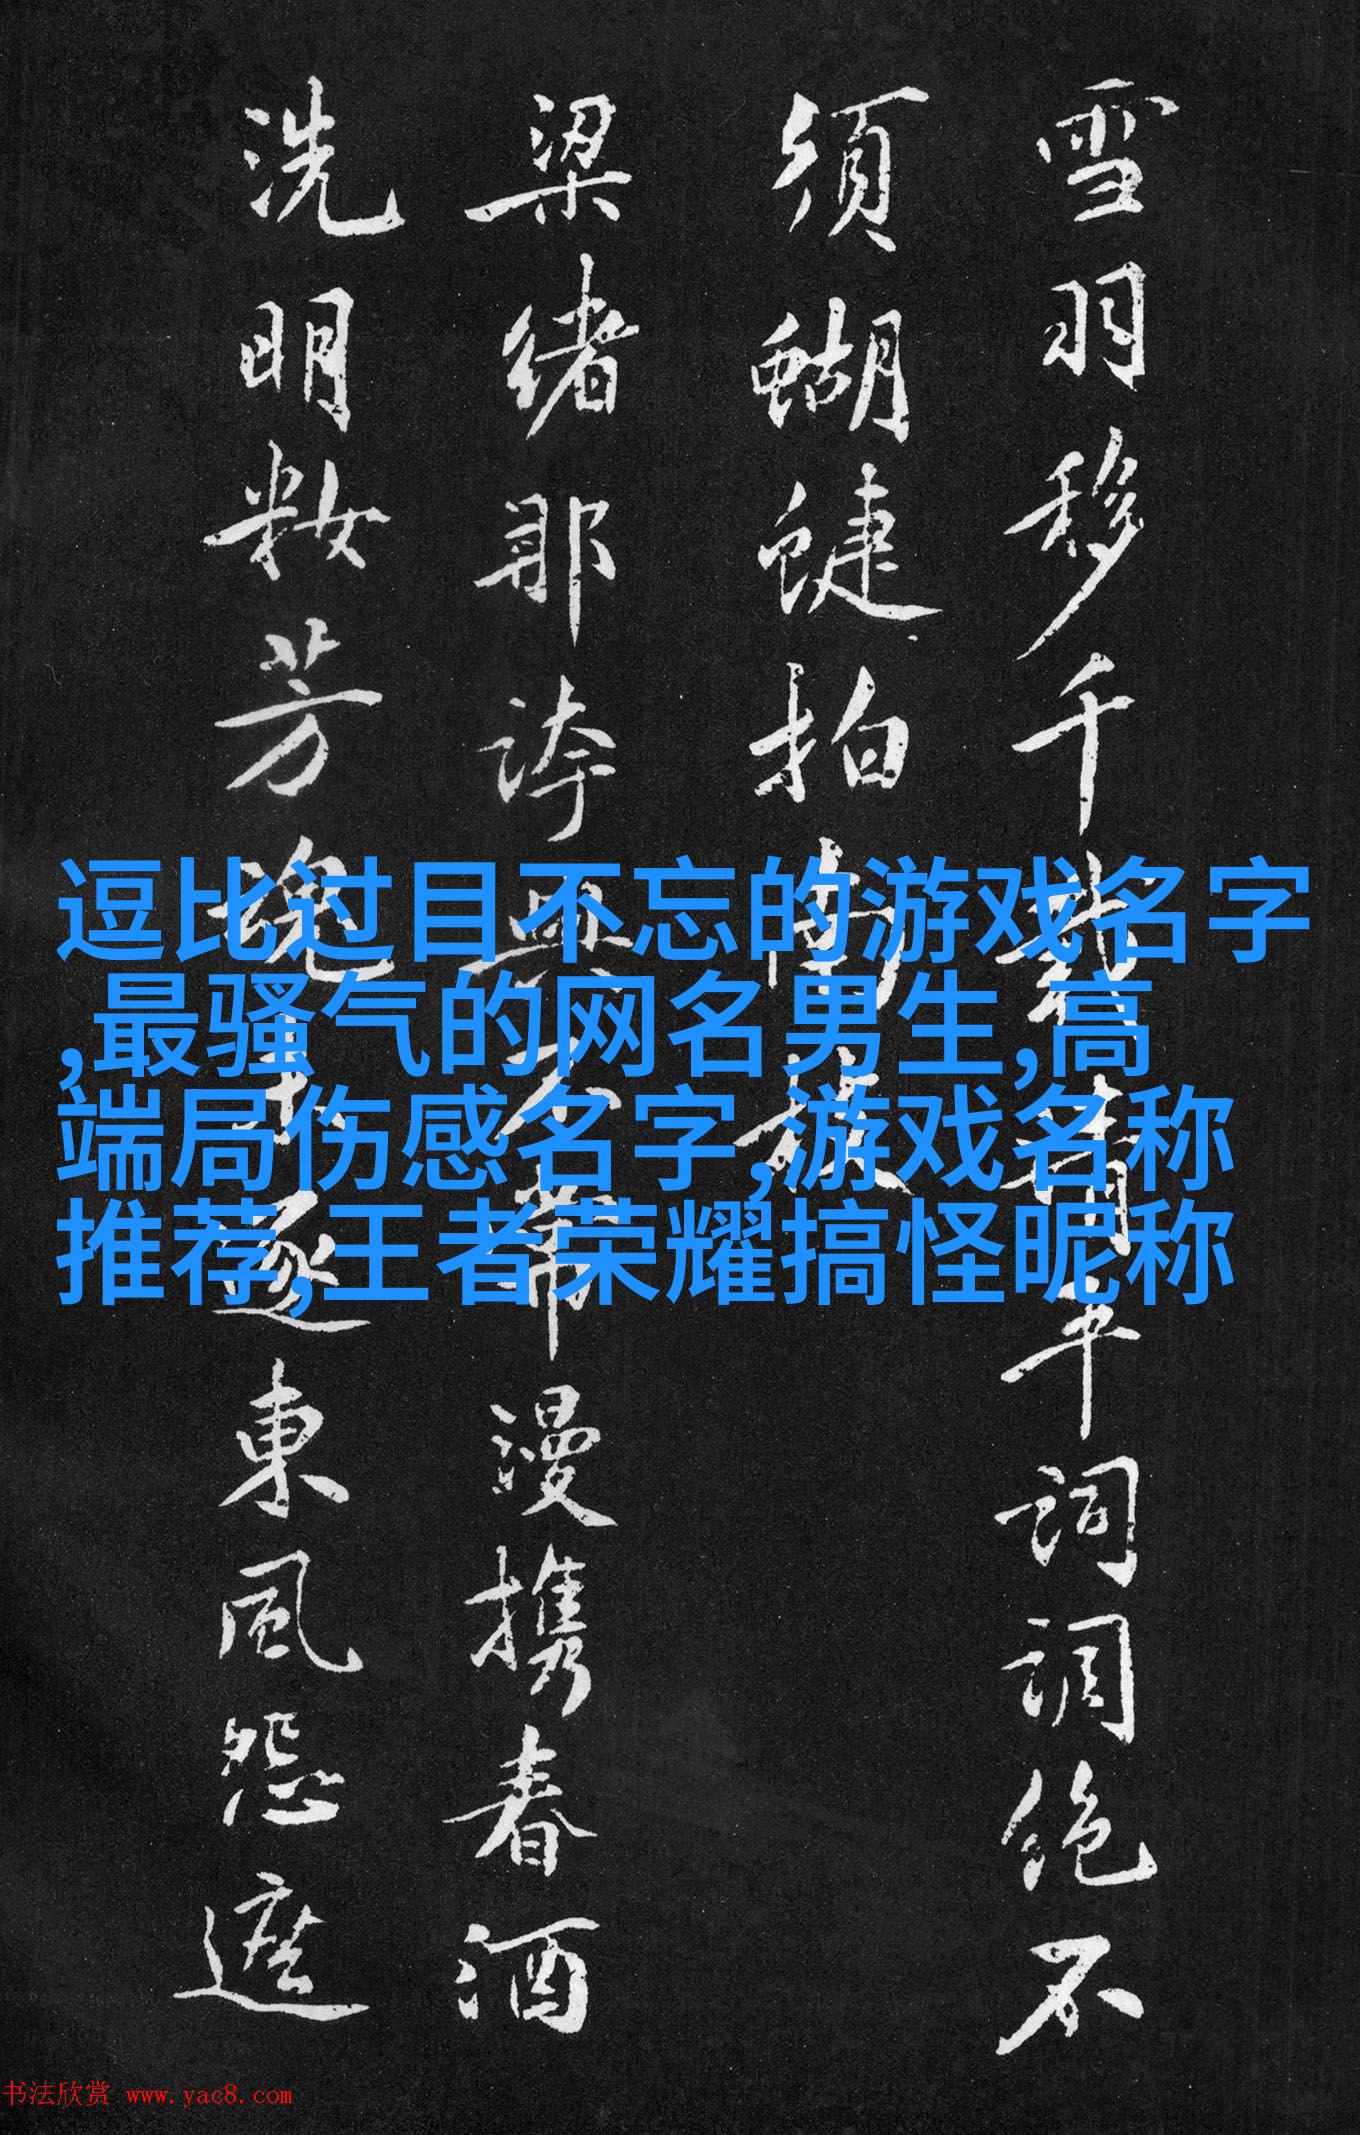 雪羽移千清平詞調絶不
須蝴蝶拍南
梁緒那誇興不常漫携春酒
洗明粧芳魂未逐東風怨遮
逗比过目不忘的游戏名字
,最骚气的网名男生,高
端局伤感名字,游戏名称
推荐,王者荣耀搞怪昵称
书法欣赏 www.yac8.com